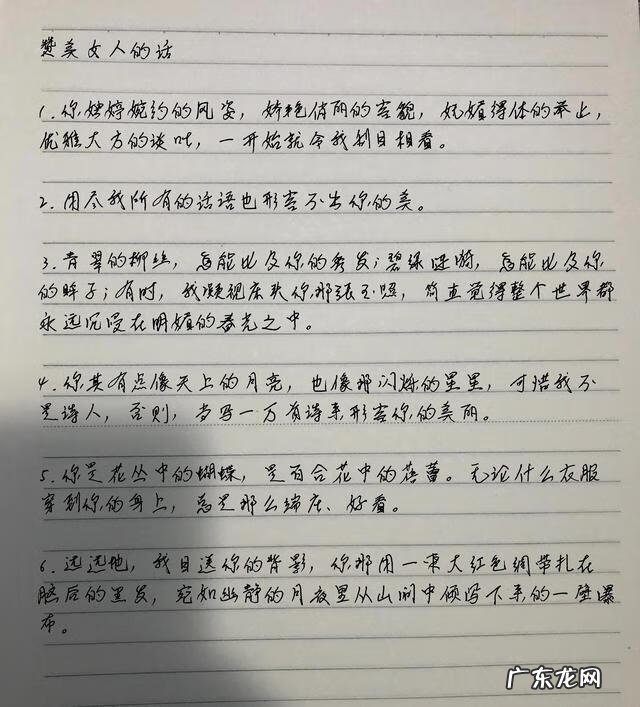 赞美女人的话
1.你娉婷婉约的风姿,娇艳俏丽的容貌,妩媚得体的举止,
优雅大方的谈吐,一开始就令我刮目相看。
2.用尽我所有的话语也形容不出你的美。
3.青翠的柳丝,怎能比及你的秀发;碧绿涟漪,怎能比及你
的眸子;有时,我凝视床头你那张玉照,简直觉得整个世界都
永远沉浸在明媚的春光之中。
4.你其有点像天上的月亮,也像那闪烁的星星,可惜我不
是诗人,否则,当写一万首诗来形容你的美丽。
5.你是花丛中的蝴蝶,是百合花中的蓓蕾。无论什么衣服
穿到你的身上,总是那么端庄、好看。
6.远远地,我目送你的背影,你那用一束大红色绸带扎在
脑后的黑发,宛如幽静的月夜里从山涧中倾泻下来的一壁瀑
布。
广东龙网